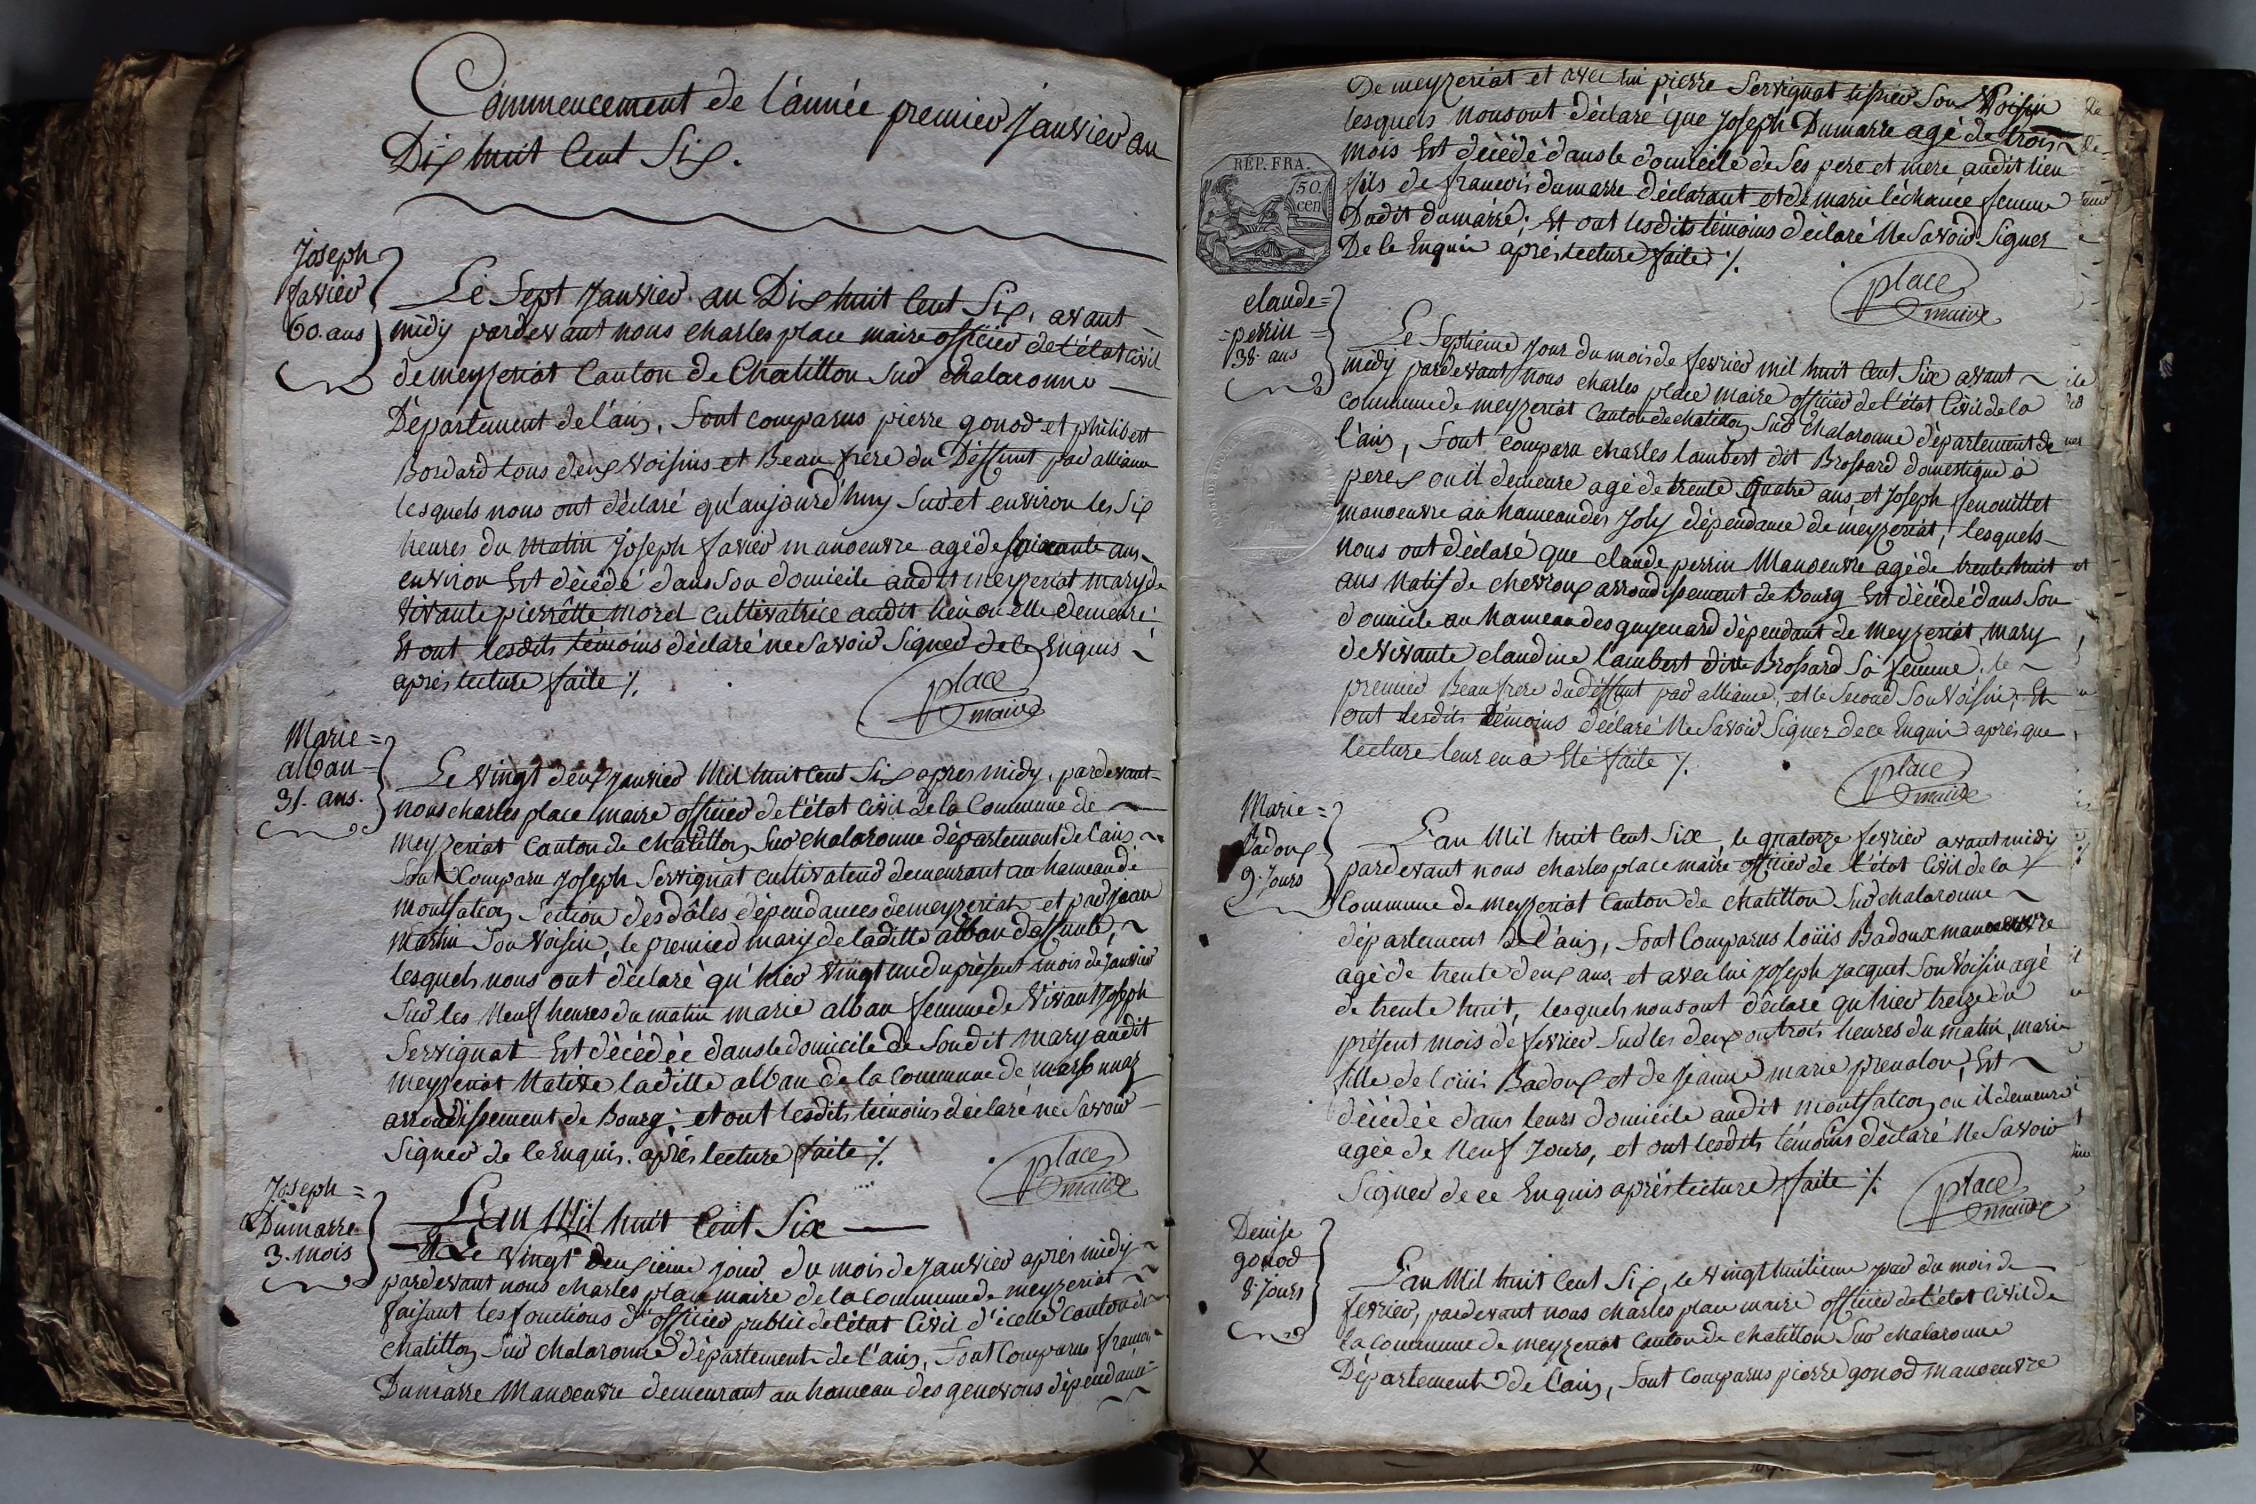 Commencement de l'année premier Janvier an
Dix huit Cent Six.
Joseph
favier
60. ans
Le Sept Janvier an Dix huit Cent Six, avant
midy pardevant nous charles place maire officier de l'état Civil
de meyzeriat Canton de Chatillon Sur chalaronne
Département de l'ain, Sont comparus pierre gonod et philibert
Bordard tous deux Voisins et Beau frere du Deffunt par alliance
lesquels nous ont déclaré qu'aujourd'huy Sur et environ les Six
heures du matin Joseph favier manoeuvre agé de Soixante ans
environ Est décédé dans Son domicile audit meyzeriat mary de
Vivante pierrette morel cultivatrice audit lieu ou elle demeure
Et ont lesdits témoins déclaré ne Savoir Signer de ce Enquis
après lecture faite ./.
place
maire
Marie =
alban
31. ans.
Le Vingt deux Janvier Mil huit Cent Six apres midy, pardevant
nous charles place maire officier de l'état Civil de la Commune de
meyzeriat Canton de chatillon Sur chalaronne département de l'ain
Sont Comparu Joseph Servignat cultivateur demeurant au hameau de
montfalcon Section des dâles dépendances de meyzeriat et par Jean
Martin Son Voisin, le premier mary de laditte alban deffunte,
lesquels nous ont déclaré qu'hier Vingt un du présent mois de Janvier
Sur les Neuf heures du matin marie alban femme de Vivant Joseph
Servignat Est décédée dans le domicile de Sondit mary audit
meyzeriat Native laditte alban de la Commune de marsonnaz
arrondissement de Bourg; et ont lesdits témoins déclaré ne Savoir
Signer de ce Enquis. après lecture faite ./.
place
maire
Joseph =
Dumarre
3. mois
L'an Mil huit Cent Six
Le Vingt deuxieme jour du mois de Janvier après midy
pardevant nous charles place maire de la Commune de meyzeriat
faisant les fonctions d'officier public de l'état Civil d'icelle Canton de
chatillon Sur chalaronne département de l'ain, Sont Comparus francois
Dumarre Manoeuvre demeurant au hameau des genevous dépendance
De meyzeriat et avec lui pierre Servignat Son Voisin
lesquels Nous ont déclaré que Joseph Dumarre agé de trois
mois Est décédé dans le domicile de Ses pere et mere audit lieu
fils de francois dumarre déclarant et de marie léchance femme
Dudit dumarre; Et ont lesdits témoins déclaré Ne Savoir Signer
De Ce Enquis après lecture faite ./.
RÉP. FRA.
50.
cen
place
maire
claude =
perrin
38. ans
Le Septieme Jour du mois de fevrier mil huit Cent Six avant
midy pardevant nous charles place maire officier de l'état Civil de la
Commune de meyzeriat Canton de chatillon Sur chalaronne département de
l'ain, Sont comparu charles lambert dit Brossard domestique à
perex ou il demeure agé de trente quatre ans et Joseph fenouillet
manoeuvre au hameau des Joly dépendance de meyzeriat, lesquels
nous ont déclaré que claude perrin Manoeuvre agé de trente huit
ans Natif de chevroux arrondissement de Bourg Est décédé dans Son
domicile au hameau des guyenard dépendant de meyzeriat, mary
de Vivante claudine lambert ditte Brossard Sa femme, le
premier Beau frere du deffunt par alliance, et le Second Son Voisin, Et
ont lesdits témoins déclaré Ne Savoir Signer de ce Enquis après que
lecture leur en a Eté faite ./.
place
maire
Marie =
Badoux
9. Jours
L'an Mil huit Cent Six, le quatorze fevrier avant midy
pardevant nous charles place maire officier de l'état Civil de la
Commune de meyzeriat Canton de chatillon Sur chalaronne
département de l'ain, Sont Comparus Loüis Badoux manoeuvre
agé de trente deux ans et avec lui Joseph Jacquet Son Voisin agé
de trente huit, lesquels nous ont déclaré qu'hier treize du
présent mois de fevrier Sur les deux ou trois heures du matin, marie
fille de Loüis Badoux et de Jeanne marie prenalon, Est
décédée dans leurs domicile audit montfalcon ou il demeure
agée de Neuf Jours, et ont lesdits témoins déclaré Ne Savoir
Signer de ce Enquis après lecture faite ./.
place
maire
Denise
gonod
8 Jours
L'an Mil huit Cent Six, le Vingt huitieme jour du mois de
fevrier, pardevant nous charles place maire officier de l'état Civil de
la Commune de meyzeriat Canton de chatillon Sur chalaronne
Département de l'ain, Sont comparus pierre gonod manoeuvre